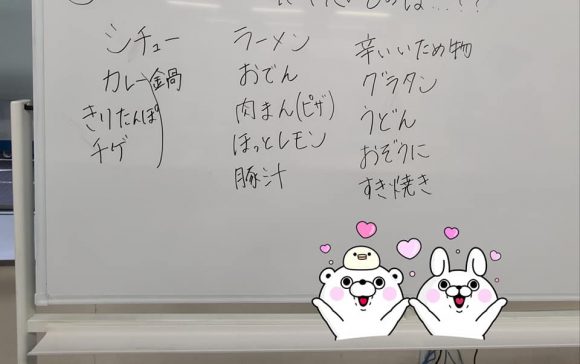 シチュー
カレー鍋
きりたんぽ
チゲ
ラーメン
おでん
肉まん(ピザ)
ほっとレモン
豚汁
辛いいため物
グラタン
うどん
おぞうに
すき焼き